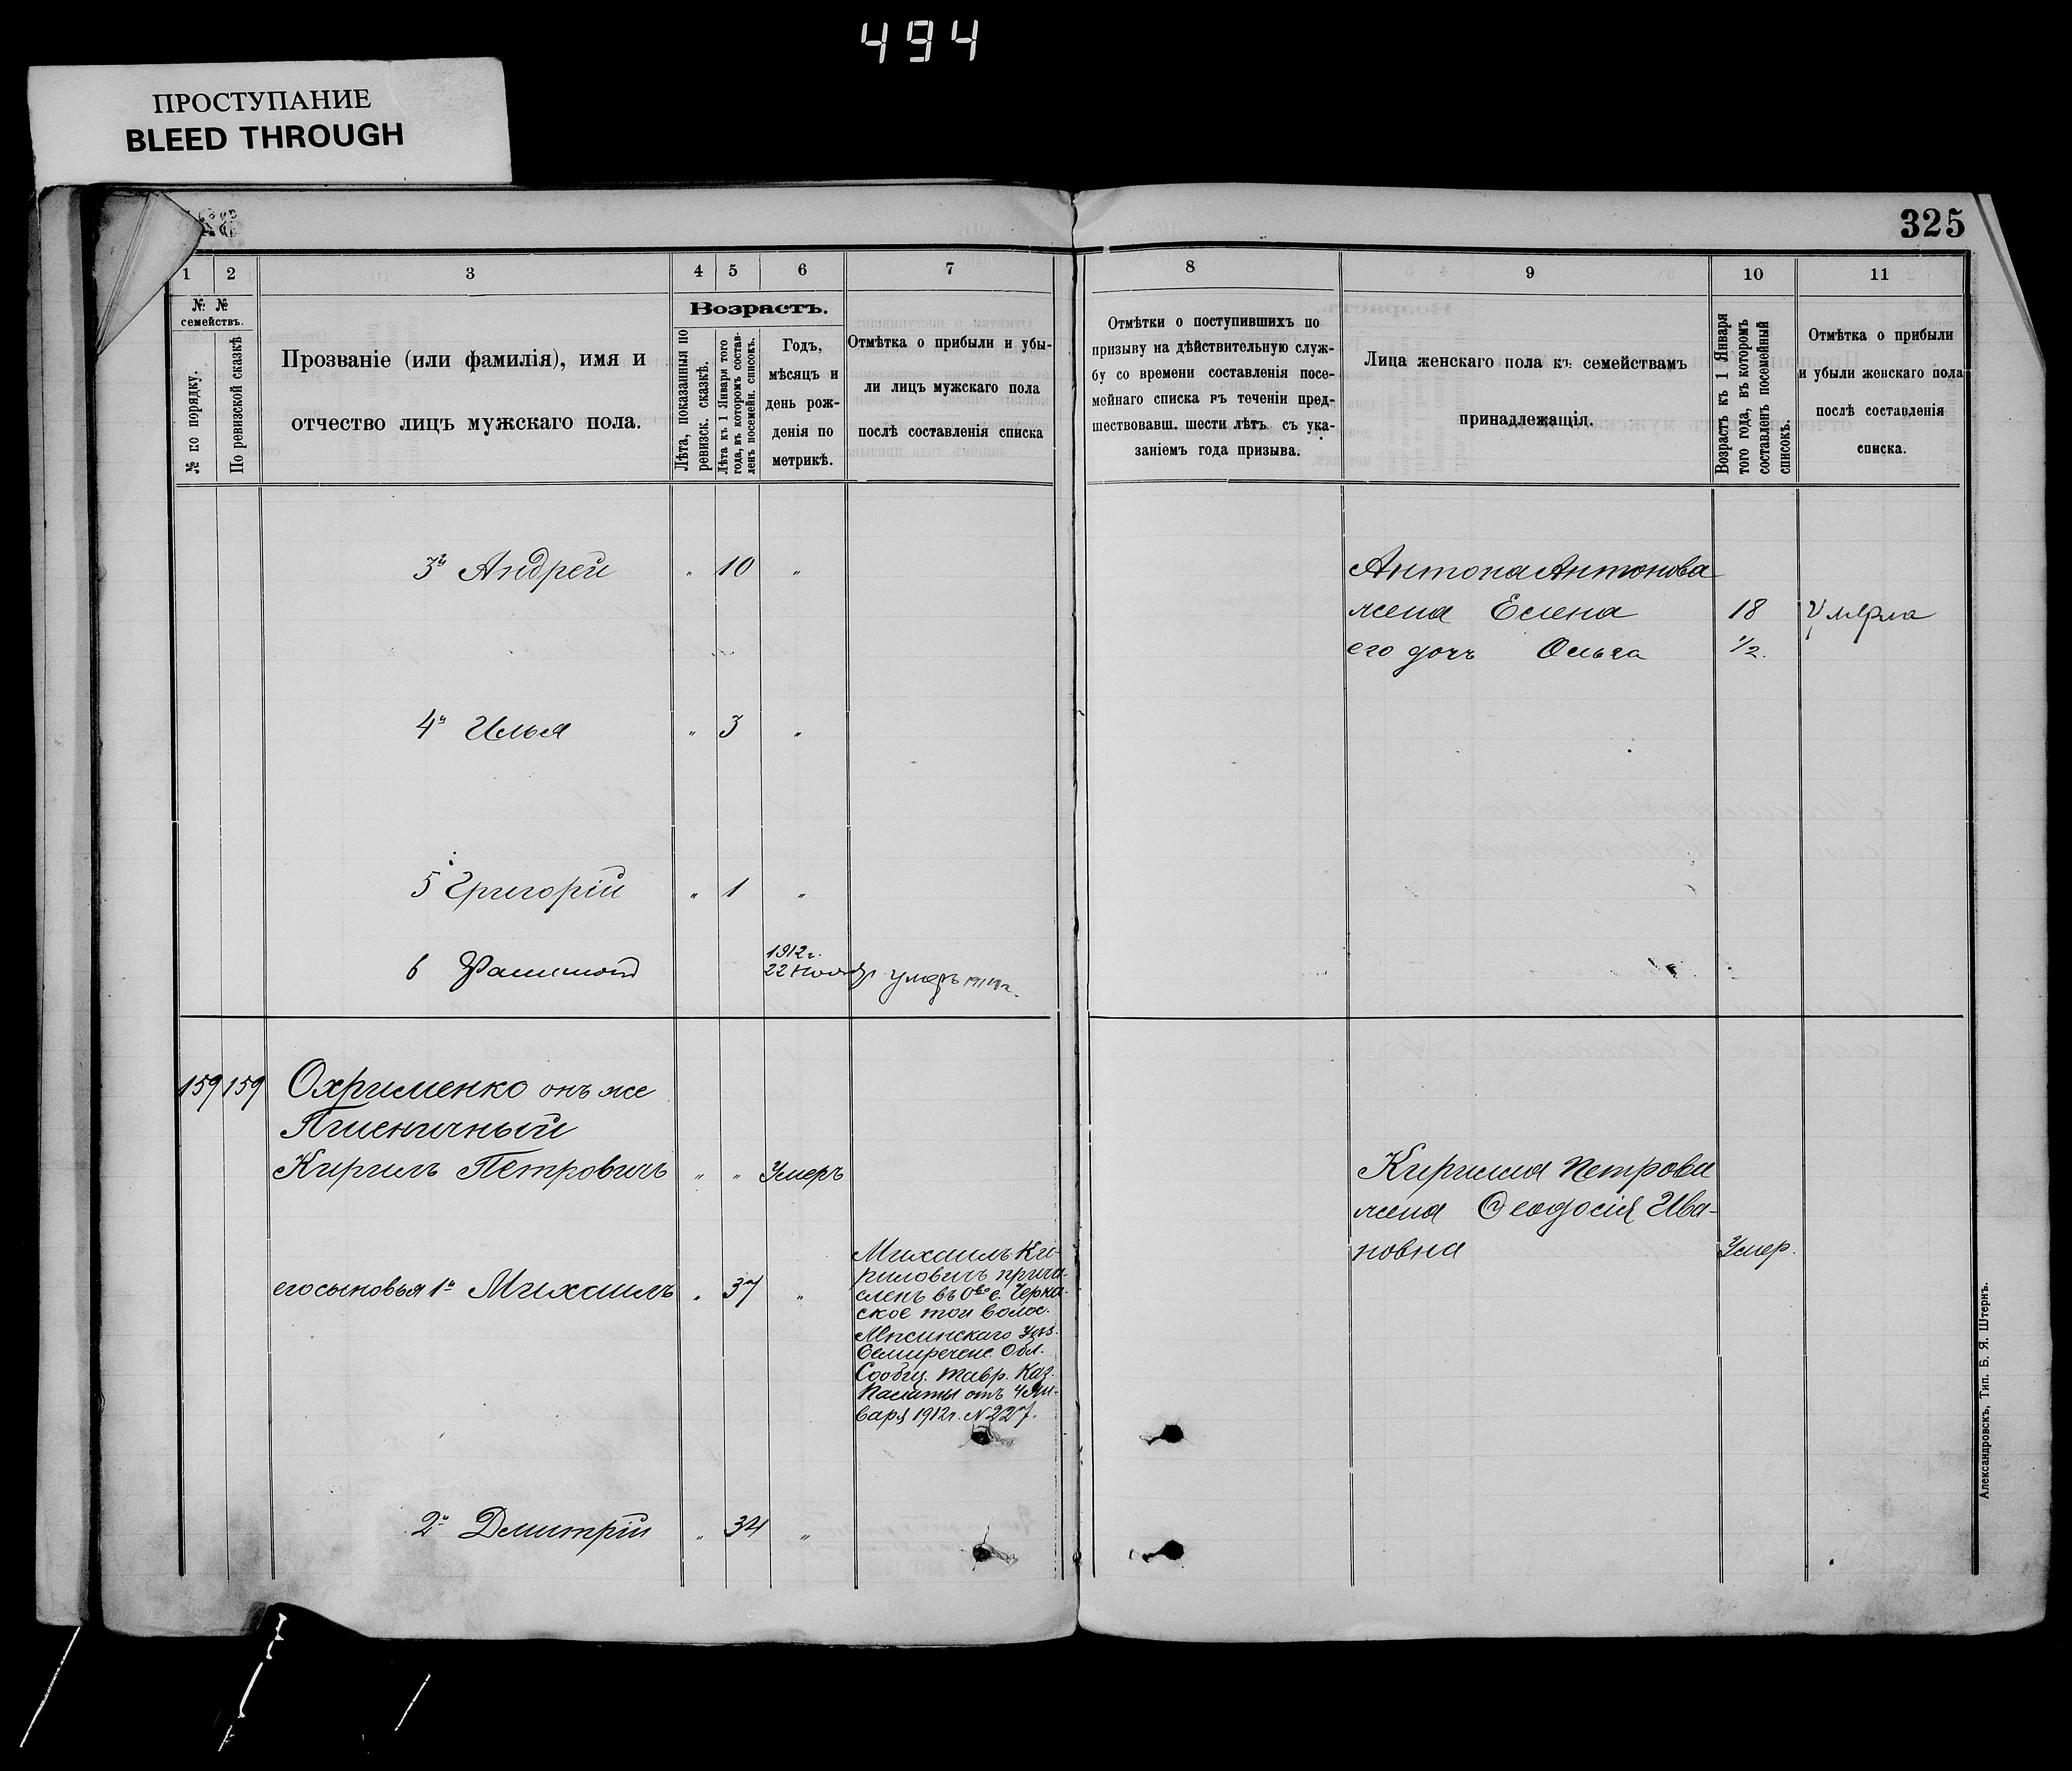 494
ПРОСТУПАНИЕ
BLEED THROUGH
325
1 2 3 4 5 6 7 8 9 10 11
№ № семействъ.
№ по порядку.
По ревизской сказкѣ
Прозваніе (или фамилія), имя и
отчество лицъ мужскаго пола.
Возрастъ.
Лѣта, показанныя по
ревизск. сказкѣ.
Лѣта къ 1 Января того
года, въ которомъ состав-
ленъ посемейн. списокъ.
Годъ,
мѣсяцъ и
день рож-
денія по
метрикѣ.
Отмѣтка о прибыли и убы-
ли лицъ мужскаго пола
послѣ составленія списка
Отмѣтки о поступившихъ по
призыву на дѣйствительную служ-
бу со времени составленія посе-
мейнаго списка въ теченіи пред-
шествовавш. шести лѣтъ съ ука-
заніемъ года призыва.
Лица женскаго пола къ семействамъ
принадлежащія.
Возрастъ къ 1 Января
того года, въ которомъ
составленъ посемейный
списокъ.
Отмѣтка о прибыли
и убыли женскаго пола
послѣ составленія
списка.
3й Андрей " 10 "
Антона Антонова
жена Елена 18 Умерла
его дочь Ольга 1/2.
4й Илья " 3 "
5 Григорій " 1 "
6 1912г.
22 Ноябр умеръ
159 159 Охрименко онъ же
Пшеничный
Кирилъ Петровичъ " " Умеръ
Кирилла Петрова
жена Феодосія Ива-
новна Умер.
его сыновья 1й Михаилъ " 37 "
Михаилъ Ки-
риловичъ причи-
сленъ въ Ово с. Черка-
ское той волос.
Лепсинскаго Уѣз.
Семиречен. Обл.
Сообщ. Тавр. Каз.
Палаты отъ 4 Ян-
варя 1912г. N 227.
2й Дмитрій " 34 "
Александровскъ, Тип. Б. Я. Штернъ.